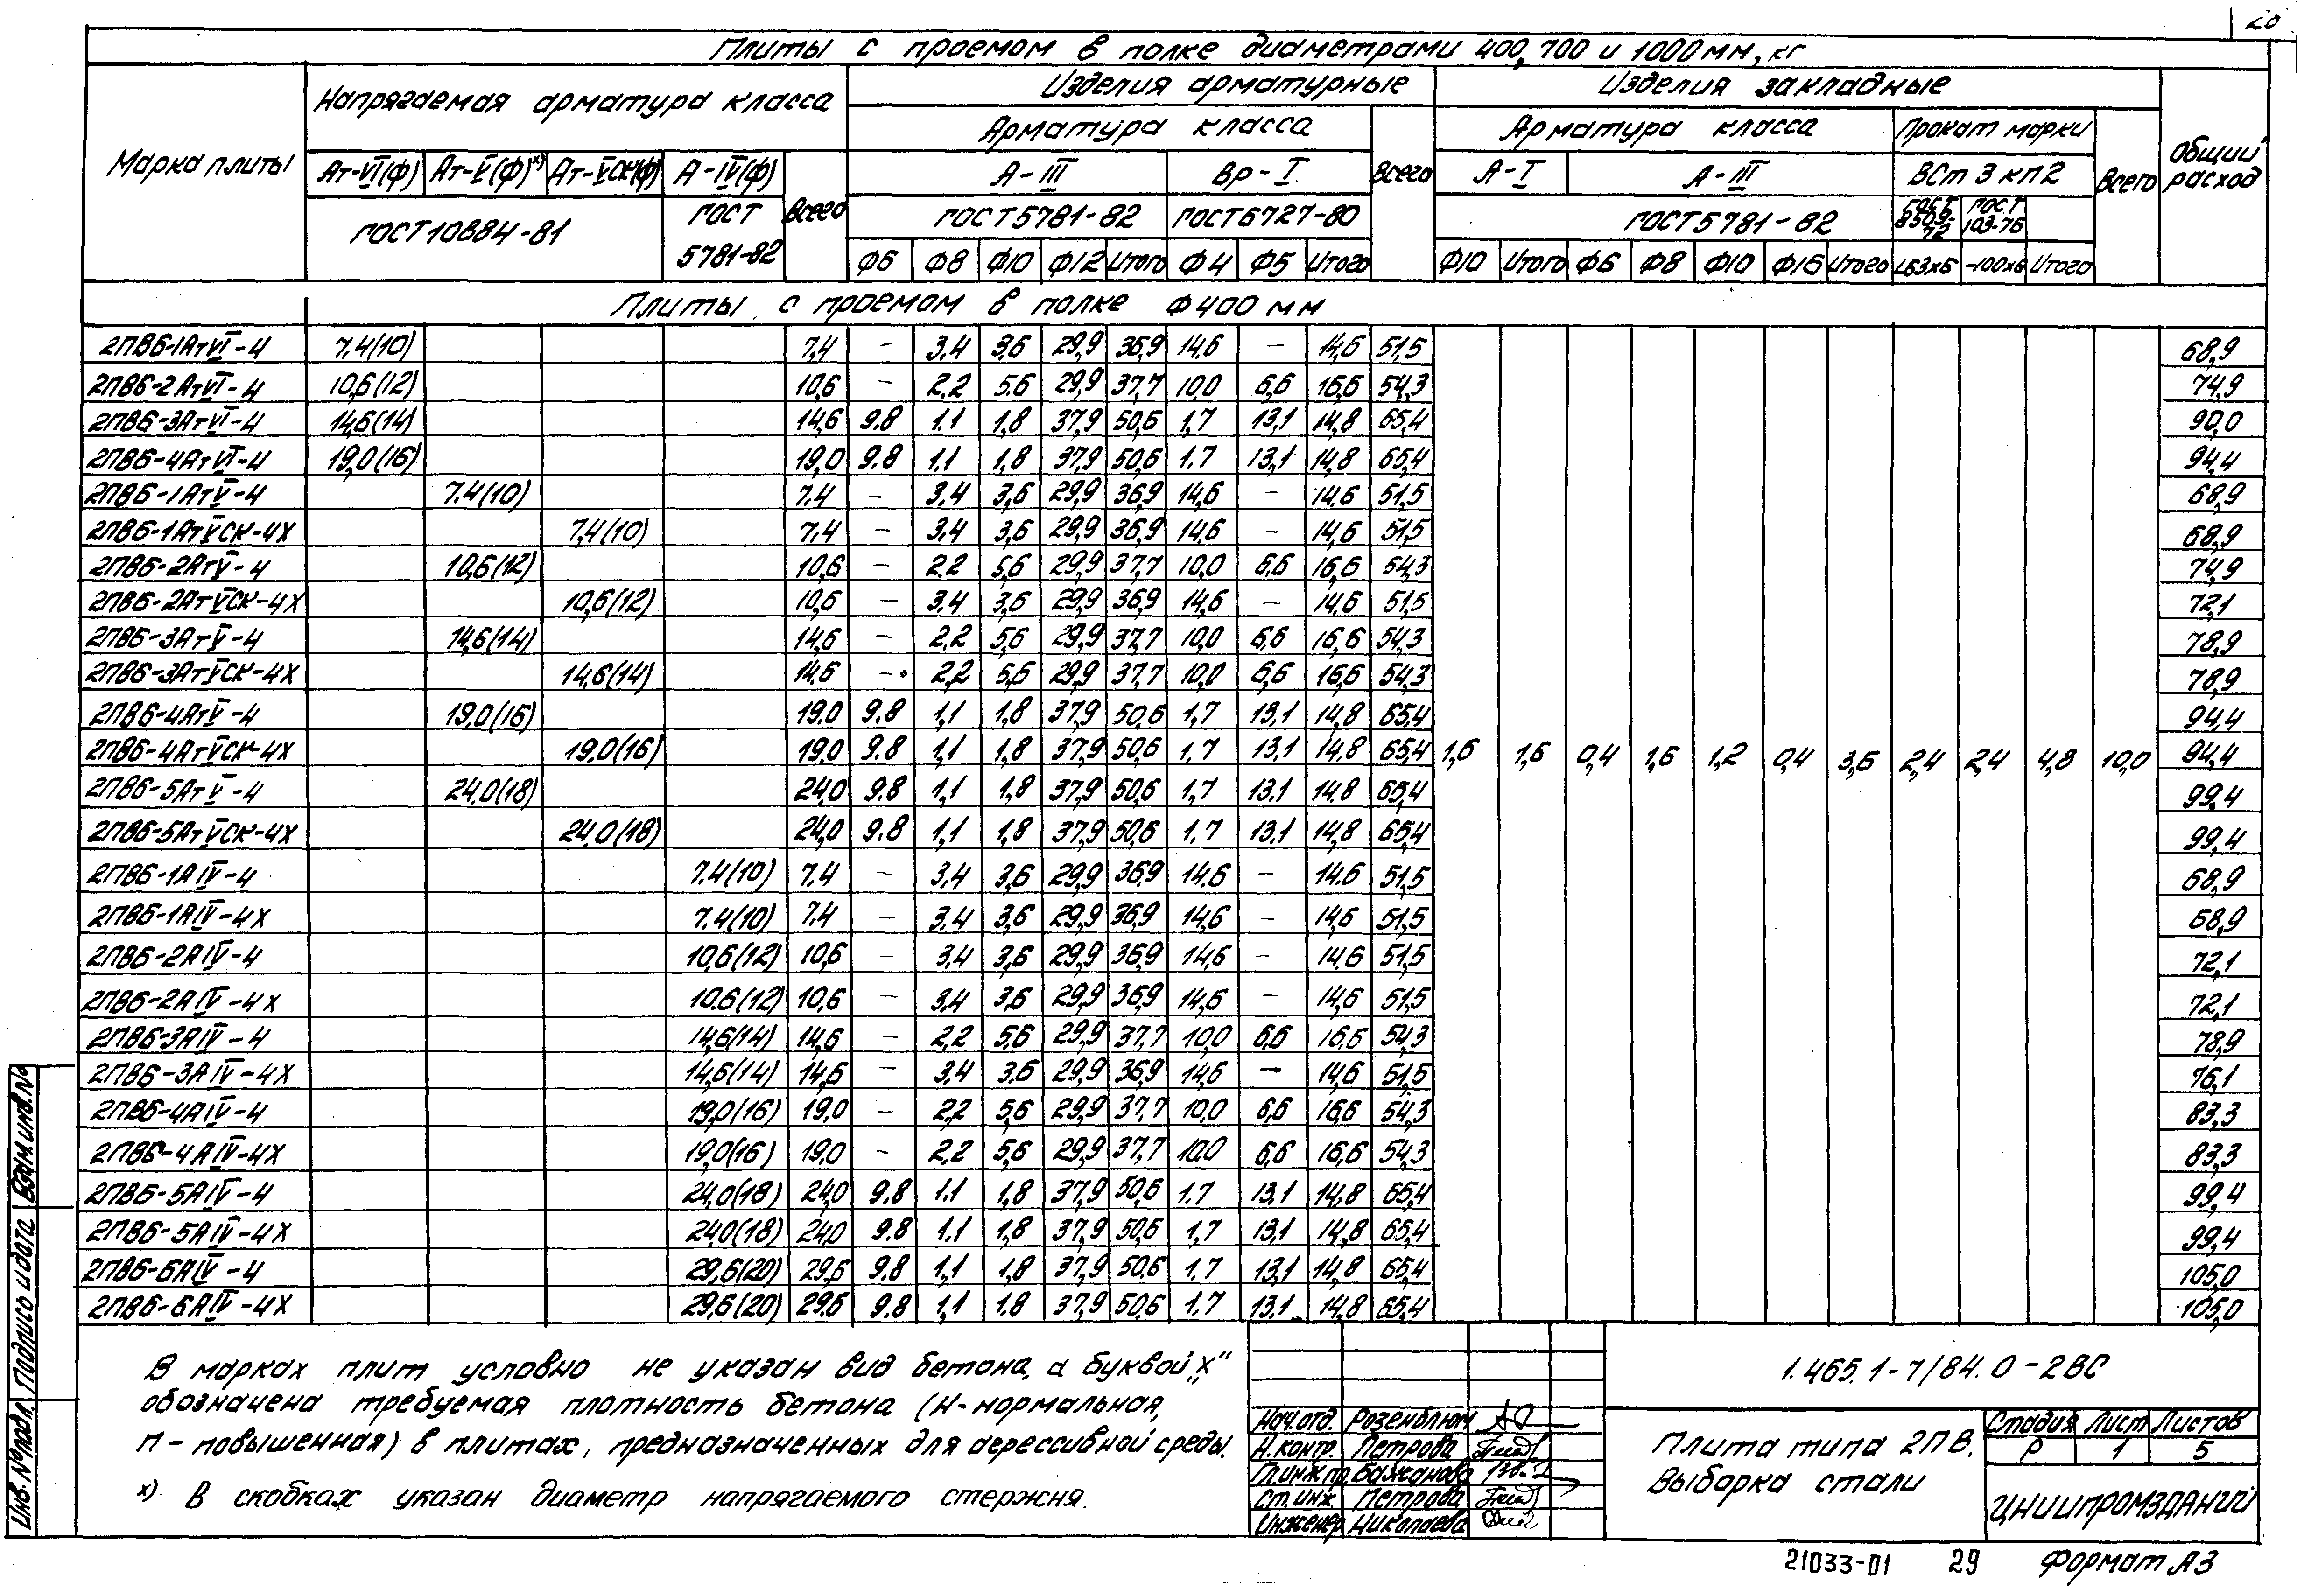 20
Плиты с проемом в полке диаметрами 400, 700 и 1000мм, кг
Марка плиты | Напрягаемая арматура класса | Изделия арматурные | Изделия закладные | Общий расход
Арматура класса | Всего | Арматура класса | Прокат марки | Всего
Ат-VI(ф) | Ат-V(ф)х) | Ат-VСК(ф) | А-IV(ф) | Всего | А-III | Вр-I | А-I | А-III | ВСт 3 кп2
ГОСТ10884-81 | ГОСТ 5781-82 | ГОСТ5781-82 | ГОСТ6727-80 | ГОСТ5781-82 | ГОСТ 8509-72 | ГОСТ 103-76
Ф6 | Ф8 | Ф10 | Ф12 | Итого | Ф4 | Ф5 | Итого | Ф10 | Итого | Ф6 | Ф8 | Ф10 | Ф16 | Итого | L63х6 | -100х6 | Итого
Плиты с проемом в полке Ф400мм
2ПВ6-1АтVI-4 | 7,4(10) | 7,4 | — | 3,4 | 3,6 | 29,9 | 36,9 | 14,6 | — | 14,6 | 51,5 | 68,9
2ПВ6-2АтVI-4 | 10,6(12) | 10,6 | — | 2,2 | 5,6 | 29,9 | 37,7 | 10,0 | 6,6 | 16,6 | 54,3 | 74,9
2ПВ6-3АтVI-4 | 14,6(14) | 14,6 | 9,8 | 1,1 | 1,8 | 37,9 | 50,6 | 1,7 | 13,1 | 14,8 | 65,4 | 90,0
2ПВ6-4АтVI-4 | 19,0(16) | 19,0 | 9,8 | 1,1 | 1,8 | 37,9 | 50,6 | 1,7 | 13,1 | 14,8 | 65,4 | 94,4
2ПВ6-1АтV-4 | 7,4(10) | 7,4 | — | 3,4 | 3,6 | 29,9 | 36,9 | 14,6 | — | 14,6 | 51,5 | 68,9
2ПВ6-1АтVСК-4Х | 7,4(10) | 7,4 | — | 3,4 | 3,6 | 29,9 | 36,9 | 14,6 | — | 14,6 | 51,5 | 68,9
2ПВ6-2АтV-4 | 10,6(12) | 10,6 | — | 2,2 | 5,6 | 29,9 | 37,7 | 10,0 | 6,6 | 16,6 | 54,3 | 74,9
2ПВ6-2АтVСК-4Х | 10,6(12) | 10,6 | — | 3,4 | 3,6 | 29,9 | 36,9 | 14,6 | — | 14,6 | 51,5 | 72,1
2ПВ6-3АтV-4 | 14,6(14) | 14,6 | — | 2,2 | 5,6 | 29,9 | 37,7 | 10,0 | 6,6 | 16,6 | 54,3 | 78,9
2ПВ6-3АтVСК-4Х | 14,6(14) | 14,6 | — | 2,2 | 5,6 | 29,9 | 37,7 | 10,0 | 6,6 | 16,6 | 54,3 | 78,9
2ПВ6-4АтV-4 | 19,0(16) | 19,0 | 9,8 | 1,1 | 1,8 | 37,9 | 50,6 | 1,7 | 13,1 | 14,8 | 65,4 | 94,4
2ПВ6-4АтVСК-4Х | 19,0(16) | 19,0 | 9,8 | 1,1 | 1,8 | 37,9 | 50,6 | 1,7 | 13,1 | 14,8 | 65,4 | 1,6 | 1,6 | 0,4 | 1,6 | 1,2 | 0,4 | 3,6 | 2,4 | 2,4 | 4,8 | 10,0 | 94,4
2ПВ6-5АтV-4 | 24,0(18) | 24,0 | 9,8 | 1,1 | 1,8 | 37,9 | 50,6 | 1,7 | 13,1 | 14,8 | 65,4 | 99,4
2ПВ6-5АтVСК-4Х | 24,0(18) | 24,0 | 9,8 | 1,1 | 1,8 | 37,9 | 50,6 | 1,7 | 13,1 | 14,8 | 65,4 | 99,4
2ПВ6-1АIV-4 | 7,4(10) | 7,4 | — | 3,4 | 3,6 | 29,9 | 36,9 | 14,6 | — | 14,6 | 51,5 | 68,9
2ПВ6-1АIV-4Х | 7,4(10) | 7,4 | — | 3,4 | 3,6 | 29,9 | 36,9 | 14,6 | — | 14,6 | 51,5 | 68,9
2ПВ6-2АIV-4 | 10,6(12) | 10,6 | — | 3,4 | 3,6 | 29,9 | 36,9 | 14,6 | — | 14,6 | 51,5 | 72,1
2ПВ6-2АIV-4Х | 10,6(12) | 10,6 | — | 3,4 | 3,6 | 29,9 | 36,9 | 14,6 | — | 14,6 | 51,5 | 72,1
2ПВ6-3АIV-4 | 14,6(14) | 14,6 | — | 2,2 | 5,6 | 29,9 | 37,7 | 10,0 | 6,6 | 16,6 | 54,3 | 78,9
2ПВ6-3АIV-4Х | 14,6(14) | 14,6 | — | 3,4 | 3,6 | 29,9 | 36,9 | 14,6 | — | 14,6 | 51,5 | 76,1
2ПВ6-4АIV-4 | 19,0(16) | 19,0 | — | 2,2 | 5,6 | 29,9 | 37,7 | 10,0 | 6,6 | 16,6 | 54,3 | 83,3
2ПВ6-4АIV-4Х | 19,0(16) | 19,0 | — | 2,2 | 5,6 | 29,9 | 37,7 | 10,0 | 6,6 | 16,6 | 54,3 | 83,3
2ПВ6-5АIV-4 | 24,0(18) | 24,0 | 9,8 | 1,1 | 1,8 | 37,9 | 50,6 | 1,7 | 13,1 | 14,8 | 65,4 | 99,4
2ПВ6-5АIV-4Х | 24,0(18) | 24,0 | 9,8 | 1,1 | 1,8 | 37,9 | 50,6 | 1,7 | 13,1 | 14,8 | 65,4 | 99,4
2ПВ6-6АIV-4 | 29,6(20) | 29,6 | 9,8 | 1,1 | 1,8 | 37,9 | 50,6 | 1,7 | 13,1 | 14,8 | 65,4 | 105,0
2ПВ6-6АIV-4Х | 29,6(20) | 29,6 | 9,8 | 1,1 | 1,8 | 37,9 | 50,6 | 1,7 | 13,1 | 14,8 | 65,4 | 105,0
В марках плит условно не указан вид бетона, а буквой „х"
обозначена требуемая плотность бетона (Н-нормальная,
П-повышенная) в плитах, предназначенных для агрессивной среды.
х). В скобках указан диаметр напрягаемого стержня.
Нач.отд. Розенблюм
Н.контр. Петрова
Гл.инж.пр. Бажанова
Ст.инж. Петрова
Инженер Николаева
1.465.1-7/84.0-2ВС
Плита типа 2ПВ.
Выборка стали
Стадия | Лист | Листов
Р | 1 | 5
ЦНИИПРОМЗДАНИЙ
Инв. № подл. | Подпись и дата | Взам.инв.№
21033-01 29 Формат А3